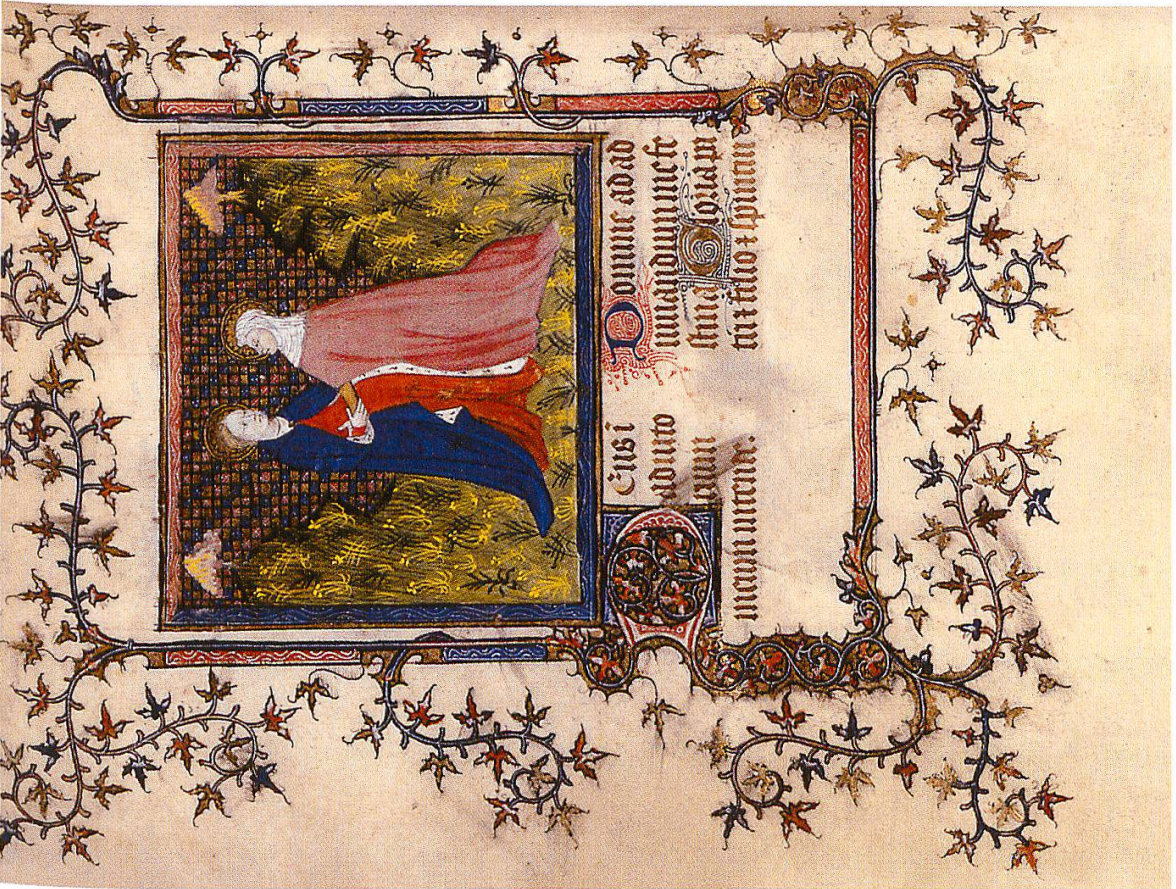 DEus ī
adiuto
rium
meum intende.
Domine ad ad
iuuandum me fe
stina Gloria pa
tri ⁊ filio ⁊ spiritui